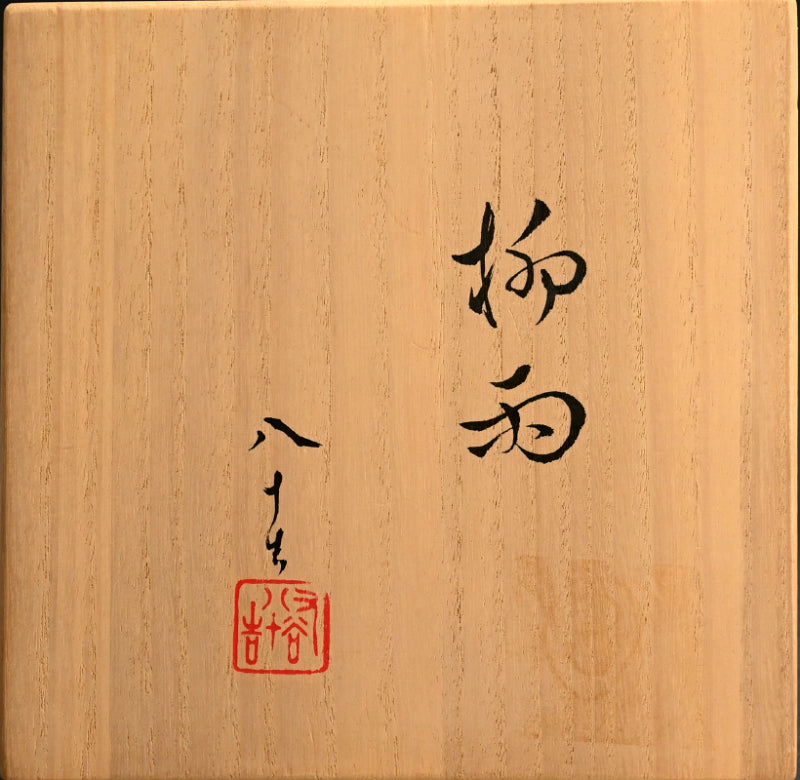 柳雨
八十吉
九谷
八十吉